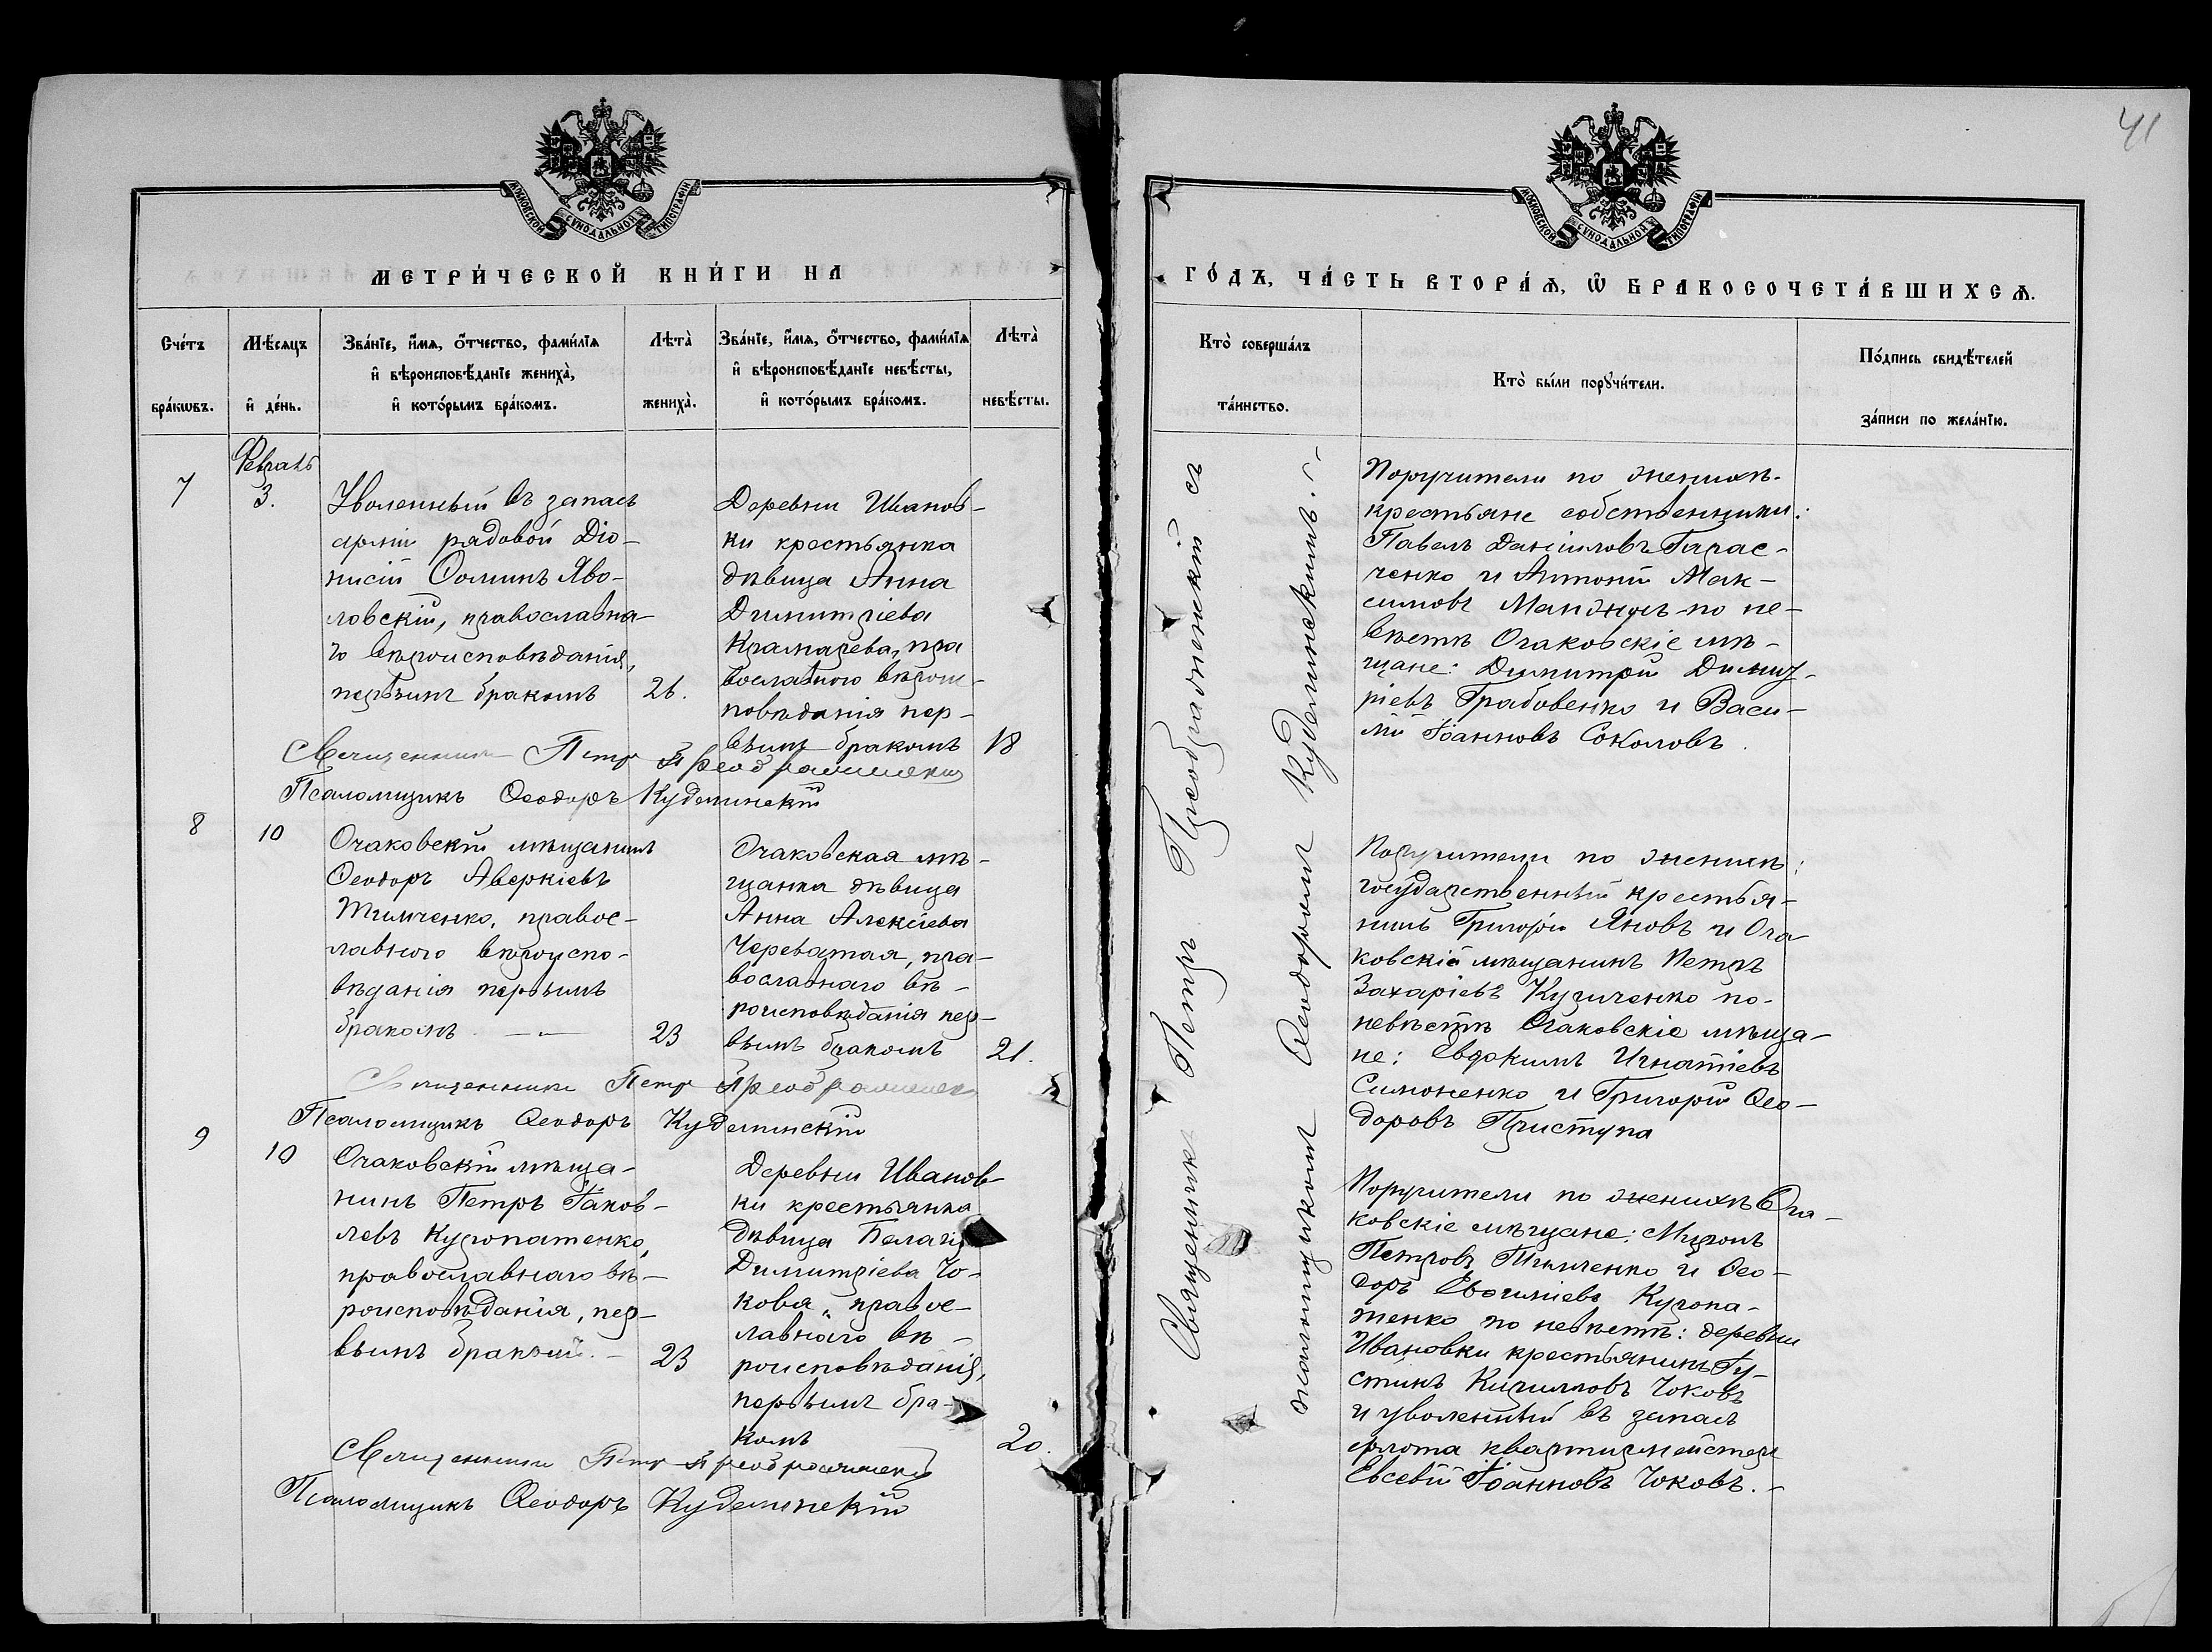 41
МОСКОВСКОЙ СѴНОДАЛЬНОЙ ТИПОГРАФІИ
МОСКОВСКОЙ СѴНОДАЛЬНОЙ ТИПОГРАФІИ
МЕТРИ́ЧЕСКОЙ КНИ́ГИ НА
ГО́ДЪ, ЧА́СТЬ ВТОРА́Ѧ, Ѽ БРАКОСОЧЕТА́ВШИХСѦ.
Сче́тъ бра́кѡвъ.
Мѣ́сяцъ и҆ де́нь.
Зва́нїе, и҆́мѧ, ѻ҆́тчество, фами́лїѧ
и҆ вѣроисповѣ́данїе жениха̀,
и҆ кото́рымъ бра́комъ.
Лѣта̀ жениха̀.
Зва́нїе, и҆́мѧ, ѻ҆́тчество, фами́лїѧ
и҆ вѣроисповѣ́данїе невѣ́сты,
и҆ кото́рымъ бра́комъ.
Лѣта̀ невѣ́сты.
Кто̀ соверша́лъ та́инство.
Кто̀ бы́ли порꙋчи́тели.
По́дпись свидѣ́телей за́писи по жела́нїю.
7
Февраль
3.
Уволенный въ запасъ
арміи рядовой Діо-
нисій Ѳоминъ Яво-
ловскій, православна-
го вѣроисповѣданія,
первымъ бракомъ
26.
Деревни Иванов-
ки крестьянка
дѣвица Анна
Димитріева
Крамарева, пра
вославного вѣроис-
повѣданія пер-
вымъ бракомъ
18
Священникъ Петр Преображенскій
Псаломщикъ Ѳеодоръ Куделинскій
8
10
Очаковскій мѣщанинъ
Ѳеодоръ Аверкіевъ
Тимченко, правос-
лавного вѣроиспо-
вѣданія первымъ
бракомъ
23
Очаковская мѣ-
щанка дѣвица
Анна Алексіева
Череватая, пра-
вославнаго вѣ-
роисповѣданія пер-
вымъ бракомъ
21.
Священникъ Петр Преображенск
Псаломщикъ Ѳеодоръ Куделинскій
9
10
Очаковскій мѣща-
нинъ Петръ Іаков-
левъ Куропатенко,
православнаго вѣ-
роисповѣданія, пер-
вымъ бракомъ. -
23
Деревни Иванов-
ки крестьянка
дѣвица Пелагія
Димитріева Чо-
кова, правос-
лавнаго вѣ-
роисповѣданія,
первымъ бра-
комъ
20.
Священникъ Петр Преображенскій
Псаломщикъ Ѳеодоръ Куделинскій
Священникъ Петръ Преображенскій съ
псаломщикомъ Ѳеодоромъ Куделинскимъ.
Поручители по женихѣ-
крестьяне собственники:
Павелъ Даніиловъ Тарас-
ченко и Антоній Мак-
симовъ Манжосъ по не-
вѣстѣ Очаковскіе мѣ-
щане: Димитрій Димит-
ріевъ Грабовенко и Васи-
лій Іоанновъ Соколовъ.
Поручители по женихѣ:
государственный крестья-
нинъ Григорій Яновъ и Оча-
ковскій мѣщанинъ Петръ
Захаріевъ Кириченко по-
невѣстѣ Очаковскіе мѣща-
не: Евдокимъ Игнатіевъ
Симоненко и Григорій Ѳео-
доровъ Приступа
Поручители по женихѣ Оча-
ковскіе мѣщане: Миронъ
Петровъ Тимченко и Ѳео-
доръ Куропа-
тенко по невѣстѣ: деревни
Ивановки крестьянинъ Іу-
стинъ Кирилловъ Чоковъ
и уволенный въ запасъ
флота квартирмейстеръ
Евсевій Іоанновъ Чоковъ. -